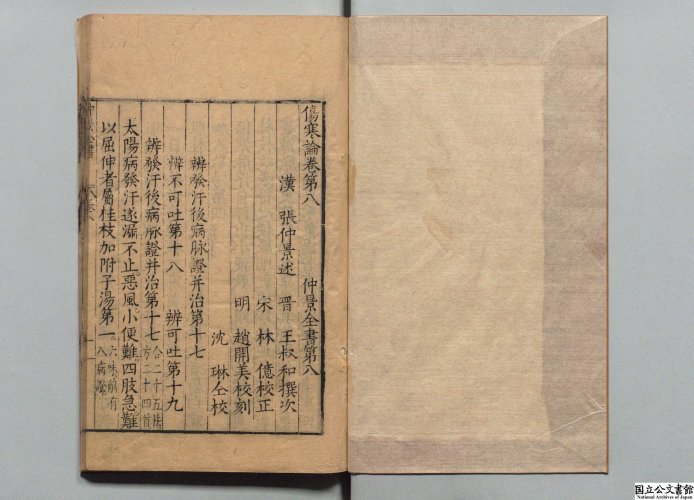 傷寒論卷第八　仲景全書第八
漢　張仲景述　晋　王叔和撰次
宋　林　億校正
明　趙開美校刻
沈　琳仝校
辨發汗後病脉證并治第十七
辨不可吐第十八　辨可吐第十九
辨發汗後病脉證并治第十七 合二十五法方二十四首
太陽病發汗遂漏不止惡風小便難四肢急難
以屈伸者屬桂枝加附子湯第一 六味前有八病證
国立公文書館
National Archives of Japan